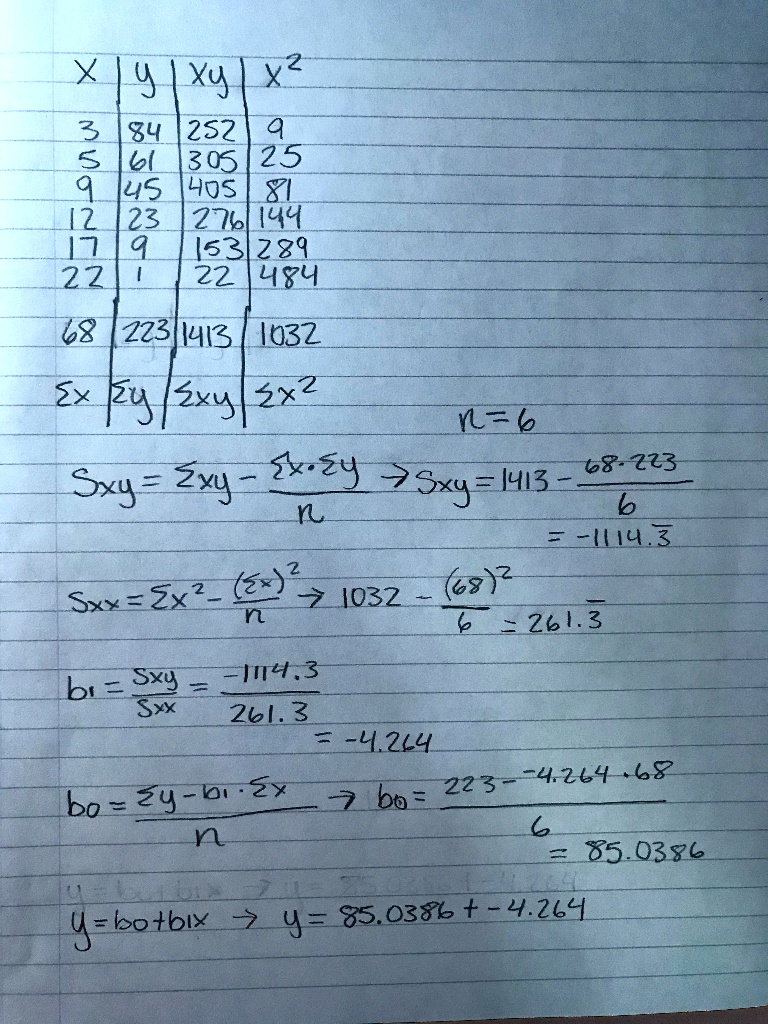 x | y | xy | x²
3 | 84 | 252 | 9
5 | 61 | 305 | 25
9 | 45 | 405 | 81
12 | 23 | 276 | 144
17 | 9 | 153 | 289
22 | 1 | 22 | 484
68 | 223 | 1413 | 1032
Σx | Σy | Σxy | Σx²
n=6
Sxy = Σxy - (Σx·Σy)/n → Sxy = 1413 - (68·223)/6
= -1114.3̅
Sxx = Σx² - (Σx)²/n → 1032 - (68)²/6 = 261.3̅
b1 = Sxy/Sxx = -1114.3/261.3
= -4.264
b0 = (Σy - b1·Σx)/n → b0 = (223 - -4.264·68)/6
= 85.0386
y = b0+b1x → y = 85.0386 + -4.264